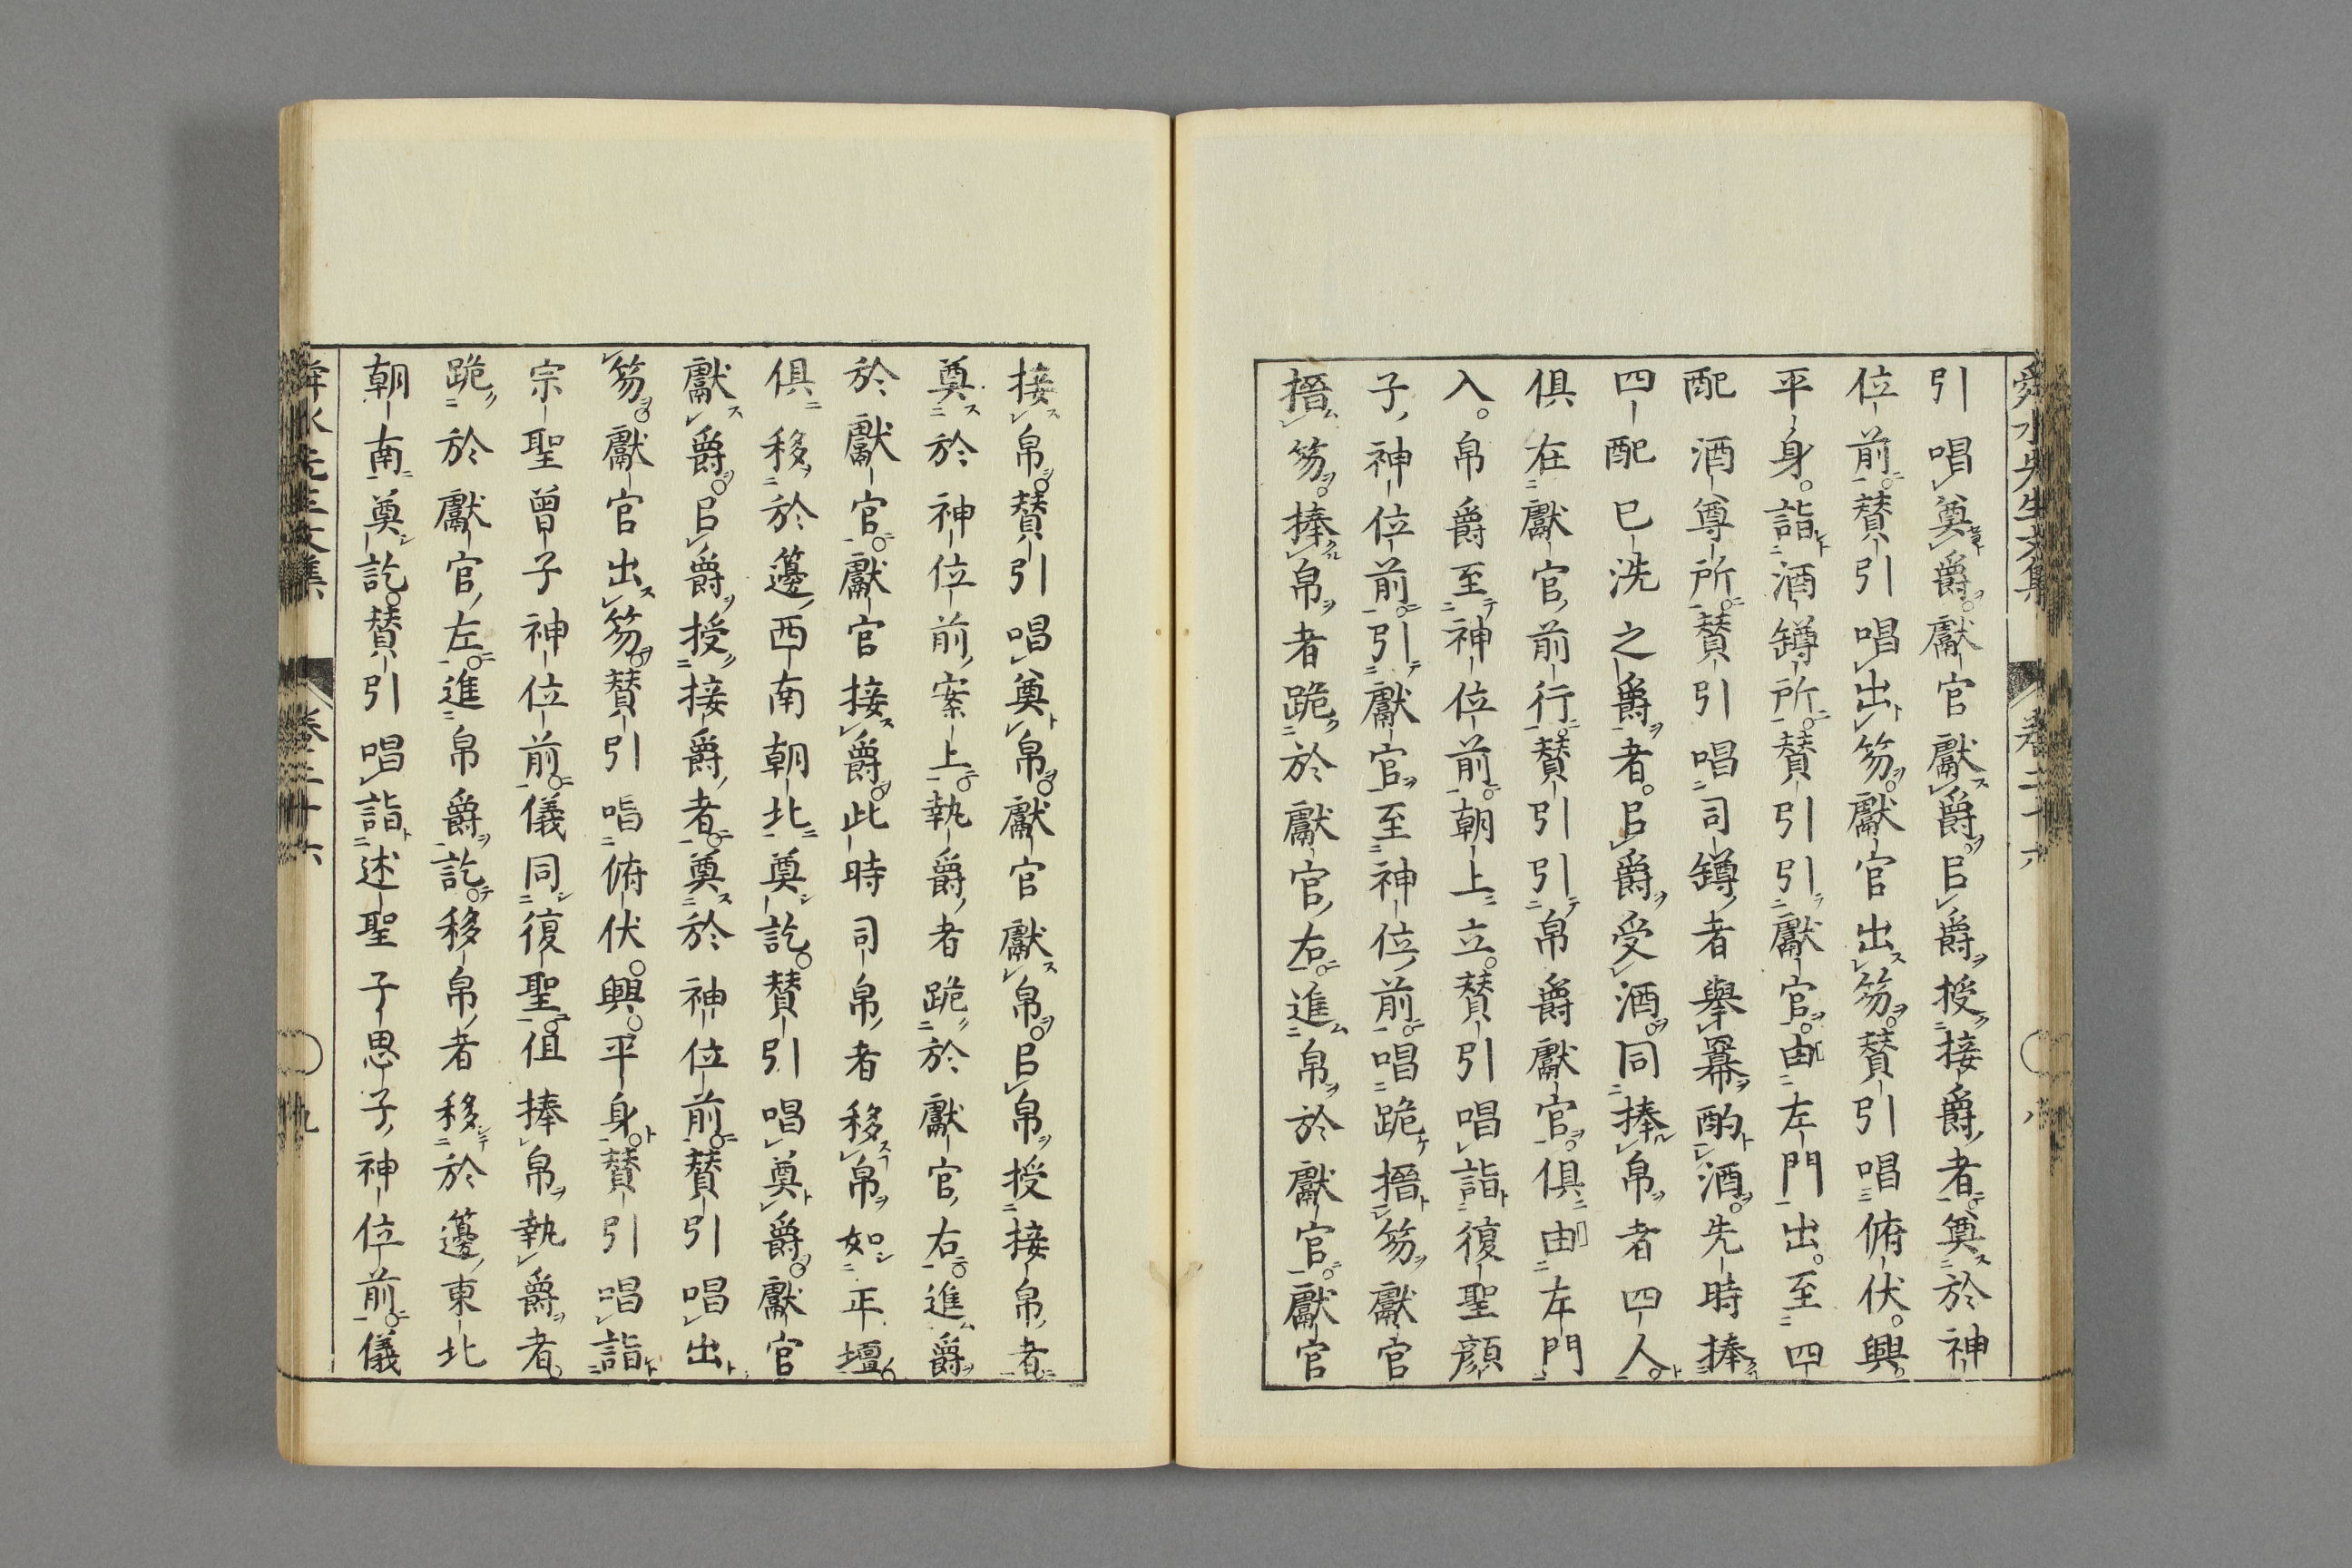 舜水先生文集 卷二十六 八
引唱奠爵。獻官獻爵。㠯爵授接爵者。奠於神
位前。賛引唱出笏。獻官出笏。賛引唱俯伏。興。
平身。詣酒罇所。賛引引獻官。由左門出。至四
配酒尊所。賛引唱司罇者舉冪酌酒。先時捧
四配巳洗之爵者。㠯爵受酒。同捧帛者四人。
俱在獻官前行。賛引引帛爵獻官。俱由左門
入。帛爵至神位前。朝上立。賛引唱詣復聖顔
子神位前。引獻官至神位前。唱跪搢笏獻官
搢笏。捧帛者跪於獻官右。進帛於獻官。獻官
接帛。賛引唱奠帛。獻官獻帛。㠯帛授接帛者
奠於神位前案上。執爵者跪於獻官右。進爵
於獻官。獻官接爵。此時司帛者移帛如正壇。
俱移於籩西南朝北奠訖。賛引唱奠爵。獻官
獻爵。㠯爵授接爵者。奠於神位前。賛引唱出
笏。獻官出笏。賛引唱俯伏。興。平身。賛引唱詣
宗聖曾子神位前。儀同復聖。值捧帛執爵者。
跪於獻官左。進帛爵訖。移帛者移於籩東北
朝南奠訖。賛引唱詣述聖子思子神位前。儀
舜水先生文集 卷二十六 九